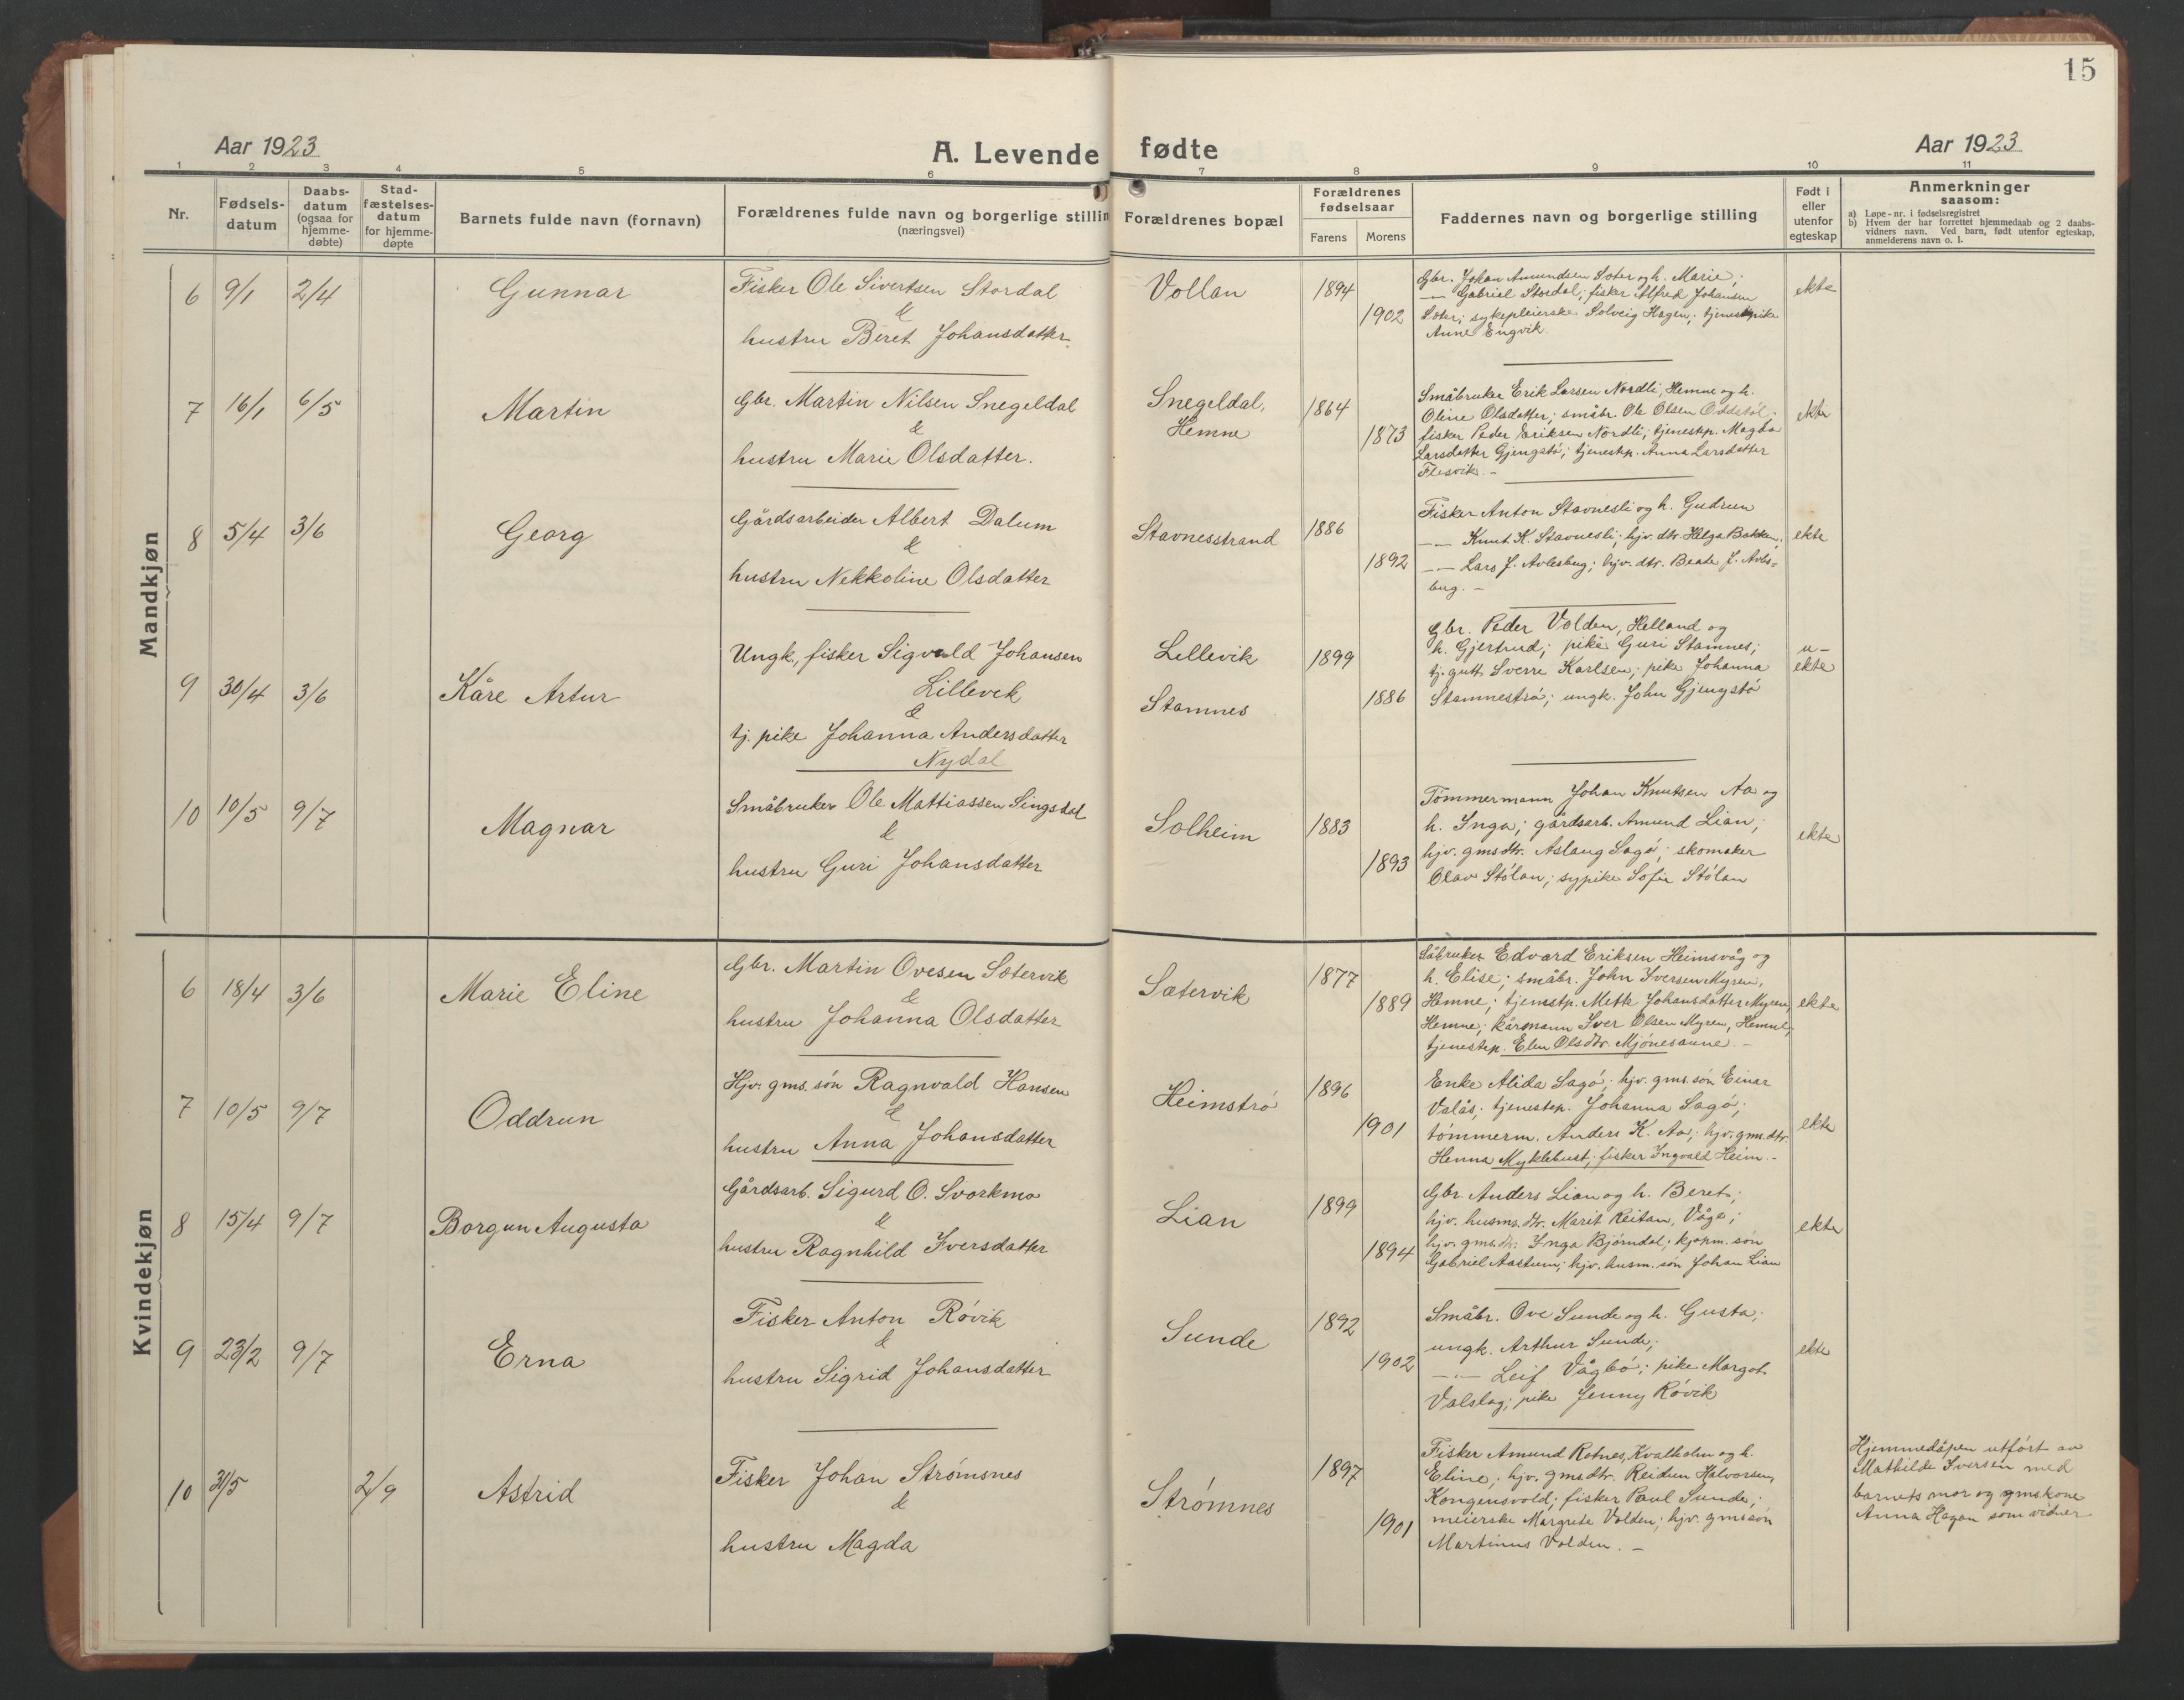 15
Aar 1923
A. Levende fødte
Aar 1923
1 2 3 4 5 6 7 8 9 10 11
Nr.
Fødsels-
datum
Daabs-
datum
(ogsaa for
hjemme-
døbte)
Stad-
fæstelses-
datum
for hjemme-
døpte
Barnets fulde navn (fornavn)
Forældrenes fulde navn og borgerlige stillin
(næringsvei)
Forældrenes bopæl
Forældrenes
fødselsaar
Farens Morens
Faddernes navn og borgerlige stilling
Født i
eller
utenfor
egteskap
Anmerkninger
saasom:
a) Løpe-nr. i fødselsregistret
b) Hvem der har forrettet hjemmedaab og 2 daabs-
vidners navn. Ved barn, født utenfor egteskap,
anmelderens navn o. l.
Mandkjøn
6 9/1 2/4 Gunnar
Fisker Ole Sivertsen Stordal
&
hustru Beret Johansdatter.
Vollan
1894
1902
Gbr. Johan Amundsen Soter og h. Marie;
— Gabriel Stordal; fisker Alfred Johansen
Soter; sykepleierske Solveig Hagen; tjenestpike
Anne Engvik.
ekte
7 16/1 6/5 Martin
Gbr. Martin Nilsen Snegeldal
&
hustru Marie Olsdatter.
Snegeldal,
Hemne
1864
1873
Småbruker Erik Larsen Nordli, Hemne og h.
Oline Olsdatter; småbr. Ole Olsen
fisker Peder Eriksen Nordli; tjenestp. Magda
Larsdatter Gjengstó; tjenestp. Anna Larsdatter
Flesvik. -
ekte
8 5/4 3/6 Georg
Gårdsarbeider Albert Dalum
&
hustru Nekkoline Olsdatter
Stavnesstrand
1886
1892
Fisker Anton Stavnesli og h. Gudrun
—— Knut K. Stavnesli; hjv. dtr. Helga Bakken;
—— Lars J. Avlesbug; hjv. dtr. Beate J. Avles-
bug. -
ekte
9 30/4 3/6 Kåre Artur
Ungk., fisker Sigvald Johansen
Lillevik
&
tj. pike Johanna Andersdatter
Nydal
Lillevik
Stamnes
1899
1886
Gbr. Peder Volden, Helland og
h. Gjertrud; pike Guri Stamnes;
tj. gutt Sverre Karlsen; pike Johanna
Stamnestró; ungk. John Gjengstó
u-
ekte
10 10/5 9/7 Magnar
Småbruker Ole Mattiassen Singsdal
&
hustru Guri Johansdatter
Solheim
1883
1893
Tømmermann Johan Knutsen Aa og
h. Inga; gårdsarb. Amund Lian;
hjv. gmsdtr. Aslaug Sagó; skomaker
Olav Stólan; sypike Sofie Stólan
ekte
Kvindekjøn
6 18/4 3/6 Marie Eline
Gbr. Martin Ovesen Sætervik
&
hustru Johanna Olsdatter
Sætervik
1877
1889
Edvard Eriksen Heimsvåg og
h. Elise; småbr. John Iversen Myren,
Hemne; tjenstp. Mette Johansdatter Myren,
Hemne; kårmann Iver Olsen Myren, Hemne;
tjenestep. Elen Olsdtr. Mjónesaune. -
ekte
7 10/5 9/7 Oddrun
Hjv. gms. són Ragnvald Hansen
&
hustru Anna Johansdatter
Heimstró
1896
1901
Enke Alida Sagó; hjv. gms. són Einar
Valås; tjenestep. Johanna Sagó;
tómmerm. Anders K. Aa; hjv. gms. dtr.
Henna Myklebust; fisker Ingvald Heim. -
ekte
8 15/4 9/7 Borgun Augusta
Gårdsarb. Sigurd O. Svorkmo
&
hustru Ragnhild Iversdatter
Lian
1899
1894
Gbr. Anders Lian og h. Beret;
hjv. husms. dtr. Marit Reitan, Våga;
hjv. gms. dtr. Inga Bjórndal; kjøpm. són
Gabriel Aastum; hjv. husm. són Johan Lian
ekte
9 23/2 9/7 Erna
Fisker Anton Róvik
&
hustru Sigrid Johansdatter
Sunde
1892
1902
Småbr. Ove Sunde og h. Gusta;
ungk. Arthur Sunde;
—"— Leif Vågbó; pike Margot
Valslag; pike Jenny Róvik
ekte
10 31/5 2/9 Astrid
Fisker Johan Strómsnes
&
hustru Magda
Strømnes
1897
1901
Fisker Amund Rotnes, Kvalholm og h.
Eline; hjv. gmsdtr. Reidun Halvorsen,
Kongensvold; fisker Paul Sunde;
meierske Margrete Volden; hjv. gmssón
Martinus Volden. -
Hjemmedåpen utfórt av
Mathilde Iversen med
barnets mor og gmskone
Anna Hagan som vidner